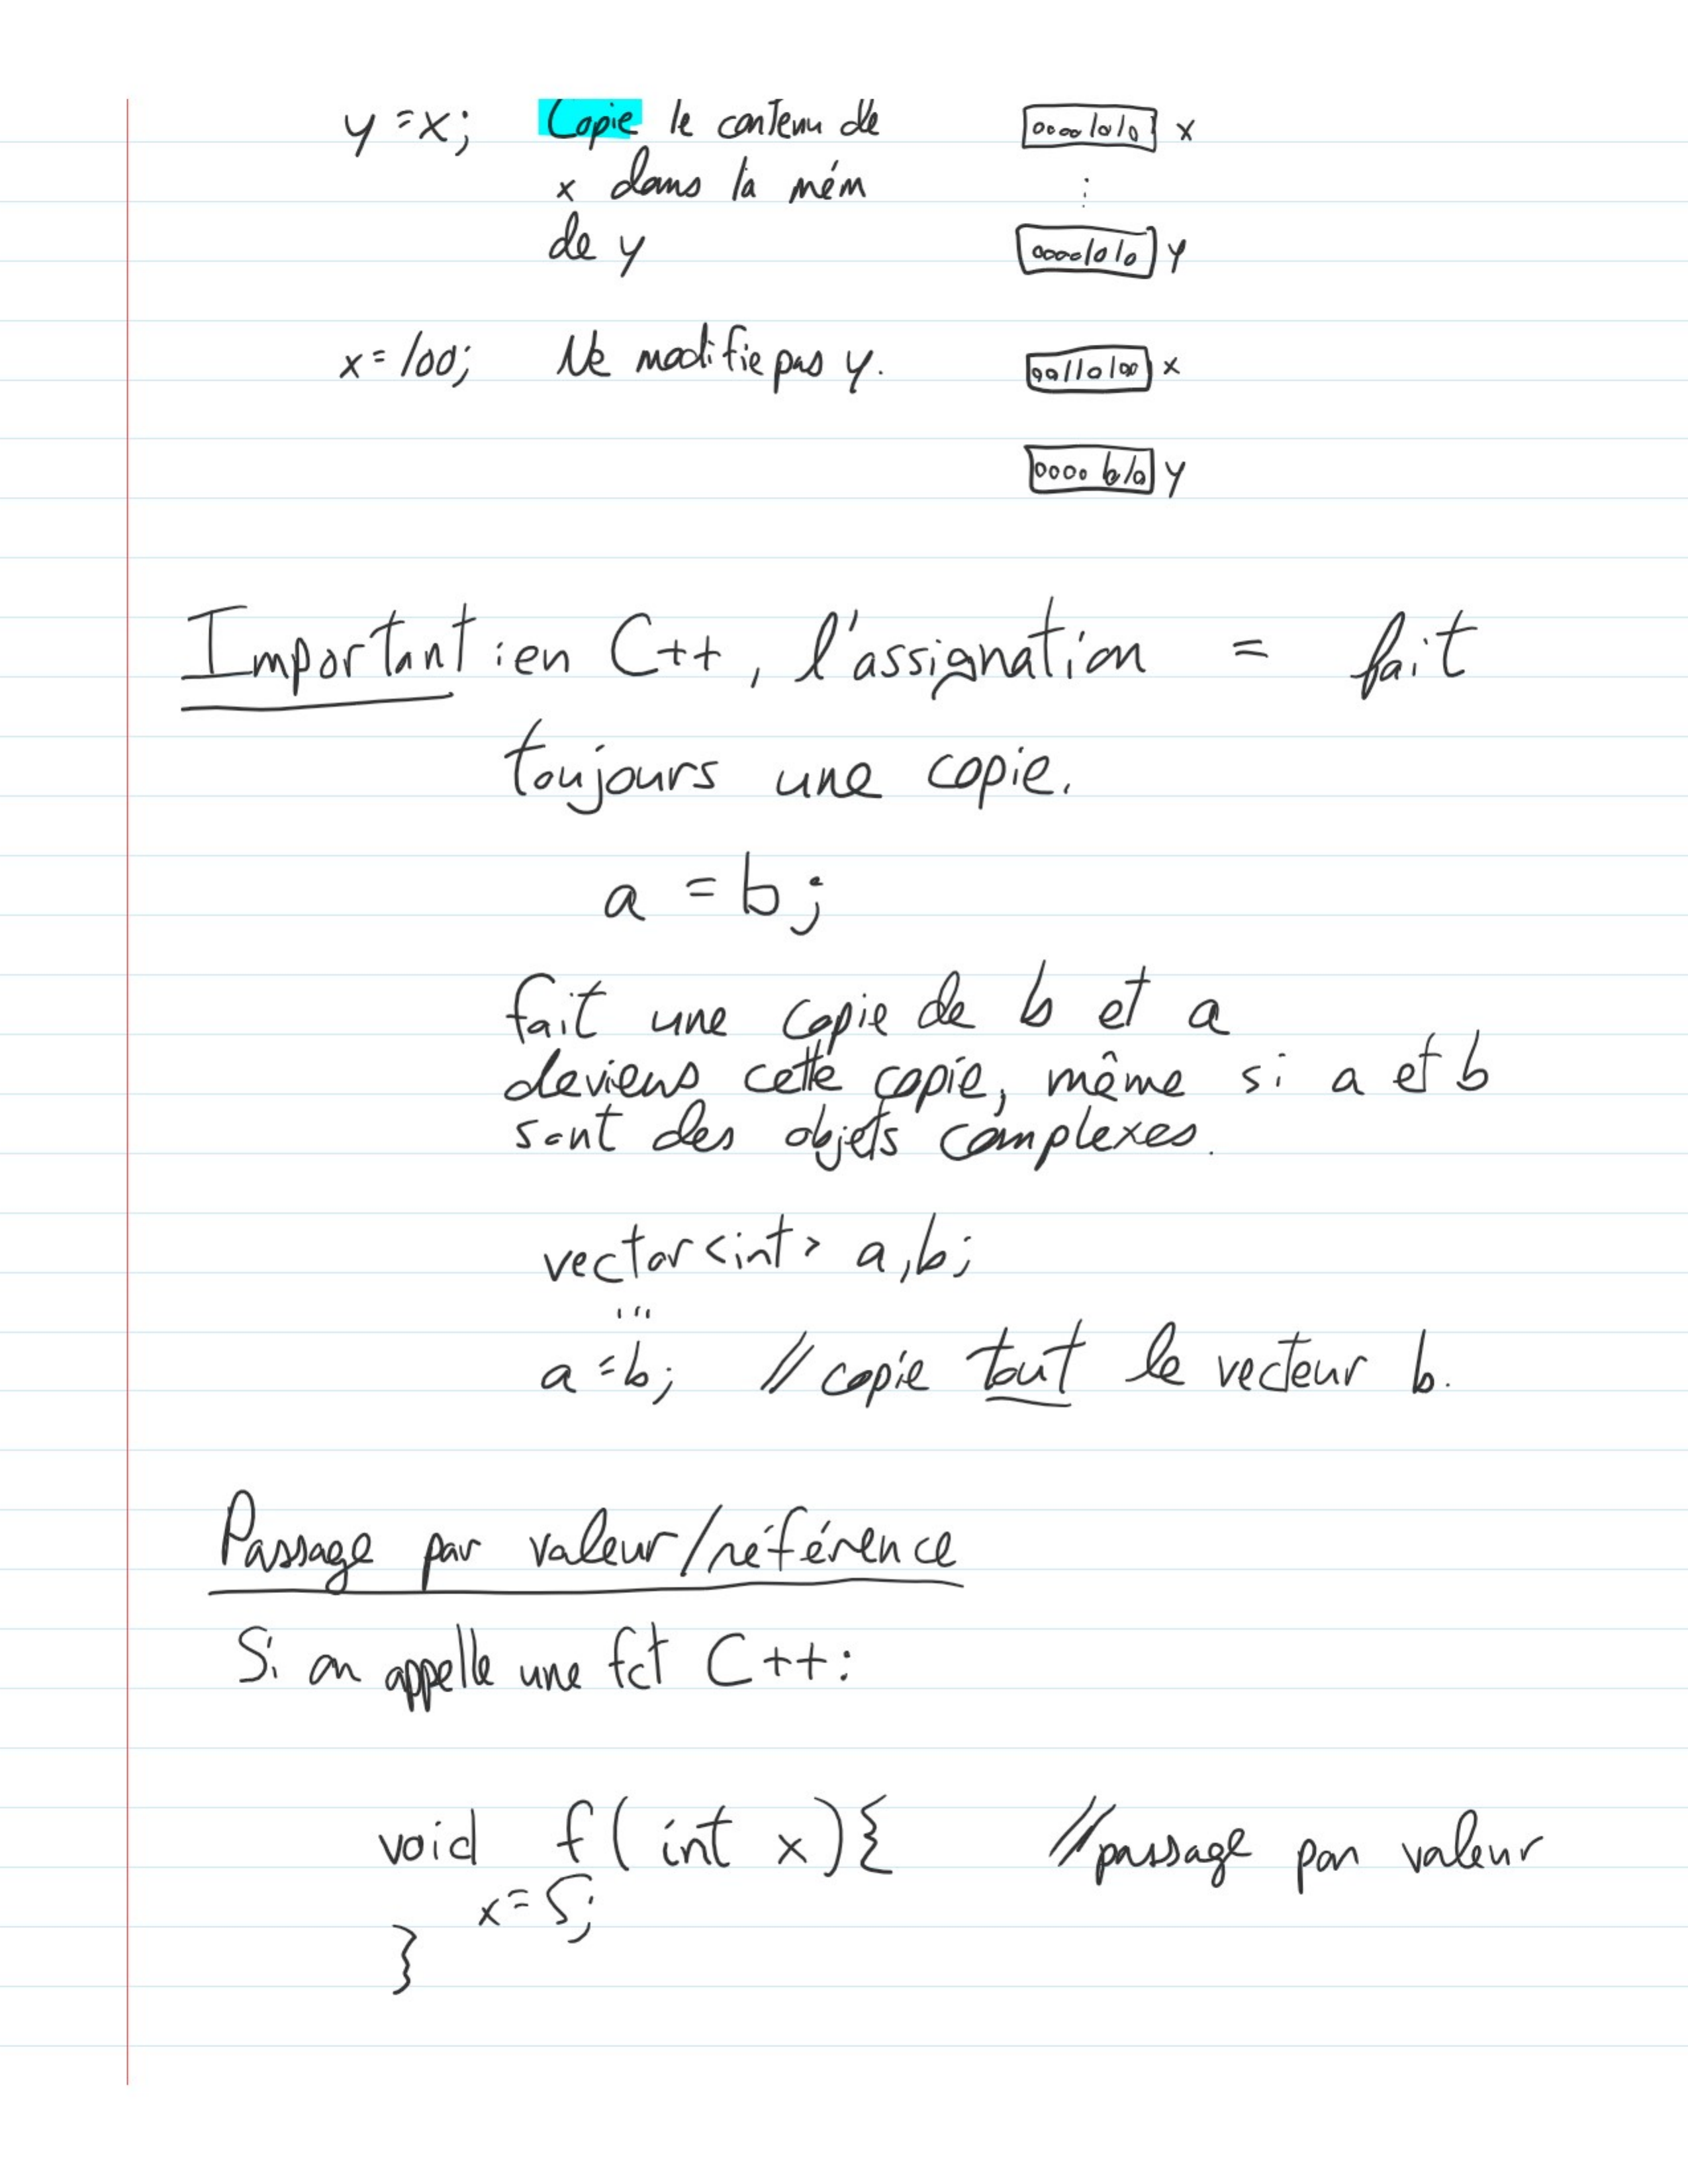 y = x; Copie le contenu de 00001010 x
x dans la mém :
de y 00001010 y
x = 100; Ne modifie pas y. 00110100 x
00001010 y
Important : en C++, l'assignation = fait
toujours une copie.
a = b;
fait une copie de b et a
deviens cette copie, même si a et b
sont des objets complexes.
vector<int> a,b;
...
a = b; // copie tout le vecteur b.
Passage par valeur/référence
Si on appelle une fct C++:
void f( int x ){ //passage par valeur
x = 5;
}